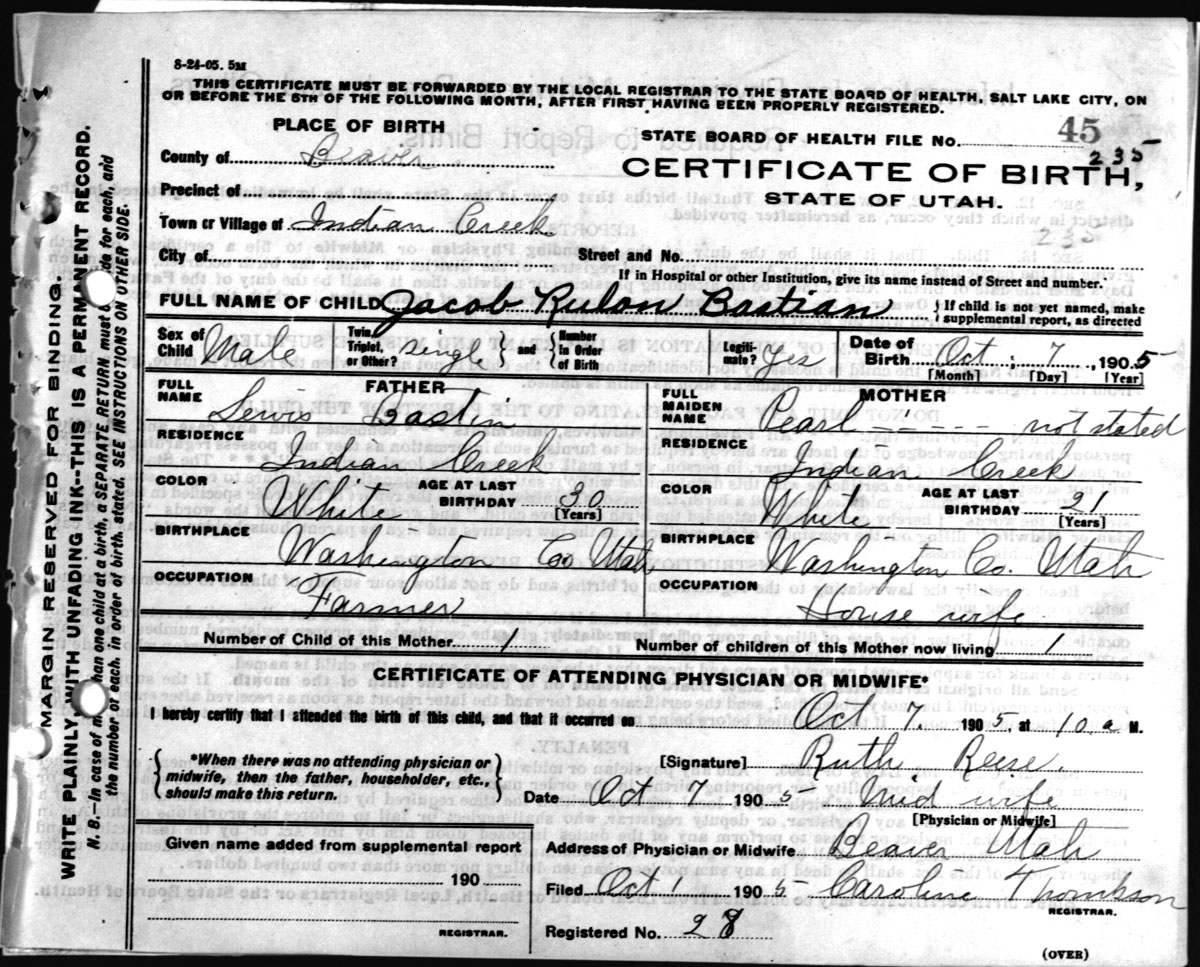 8-24-05. 5M
THIS CERTIFICATE MUST BE FORWARDED BY THE LOCAL REGISTRAR TO THE STATE BOARD OF HEALTH, SALT LAKE CITY, ON
OR BEFORE THE 5TH OF THE FOLLOWING MONTH, AFTER FIRST HAVING BEEN PROPERLY REGISTERED.
PLACE OF BIRTH
STATE BOARD OF HEALTH FILE No. 45
235
County of Beaver
CERTIFICATE OF BIRTH,
Precinct of
STATE OF UTAH.
Town or Village of Indian Creek
235
City of Street and No.
If in Hospital or other Institution, give its name instead of Street and number.
FULL NAME OF CHILD Jacob Rulon Bastian } If child is not yet named, make supplemental report, as directed
Sex of Child Male Twin, Triplet, or Other? Single } and { Number in Order of Birth Legitimate? Yes Date of Birth Oct. 7, 1905
[Month] [Day] [Year]
FATHER MOTHER
FULL NAME Lewis Bastin FULL MAIDEN NAME Pearl - - - - - not stated
RESIDENCE Indian Creek RESIDENCE Indian Creek
COLOR White AGE AT LAST BIRTHDAY 30 [Years] COLOR White AGE AT LAST BIRTHDAY 21 [Years]
BIRTHPLACE Washington Co Utah BIRTHPLACE Washington Co. Utah
OCCUPATION Farmer OCCUPATION House wife
Number of Child of this Mother 1 Number of children of this Mother now living 1
CERTIFICATE OF ATTENDING PHYSICIAN OR MIDWIFE*
I hereby certify that I attended the birth of this child, and that it occurred on Oct 7. 1905, at 10 a M.
{ *When there was no attending physician or midwife, then the father, householder, etc., should make this return. }
[Signature] Ruth Reese
Date Oct 7 1905 Mid wife
[Physician or Midwife]
Given name added from supplemental report
Address of Physician or Midwife Beaver Utah
190
Filed Oct 1 1905- Caroline Thomkson
REGISTRAR.
REGISTRAR.
Registered No. 28
(OVER)
MARGIN RESERVED FOR BINDING.
WRITE PLAINLY, WITH UNFADING INK--THIS IS A PERMANENT RECORD.
N. B.--In case of than one child at a birth, a SEPARATE RETURN must be for each, and
the number of each, in order of birth stated. SEE INSTRUCTIONS ON OTHER SIDE.